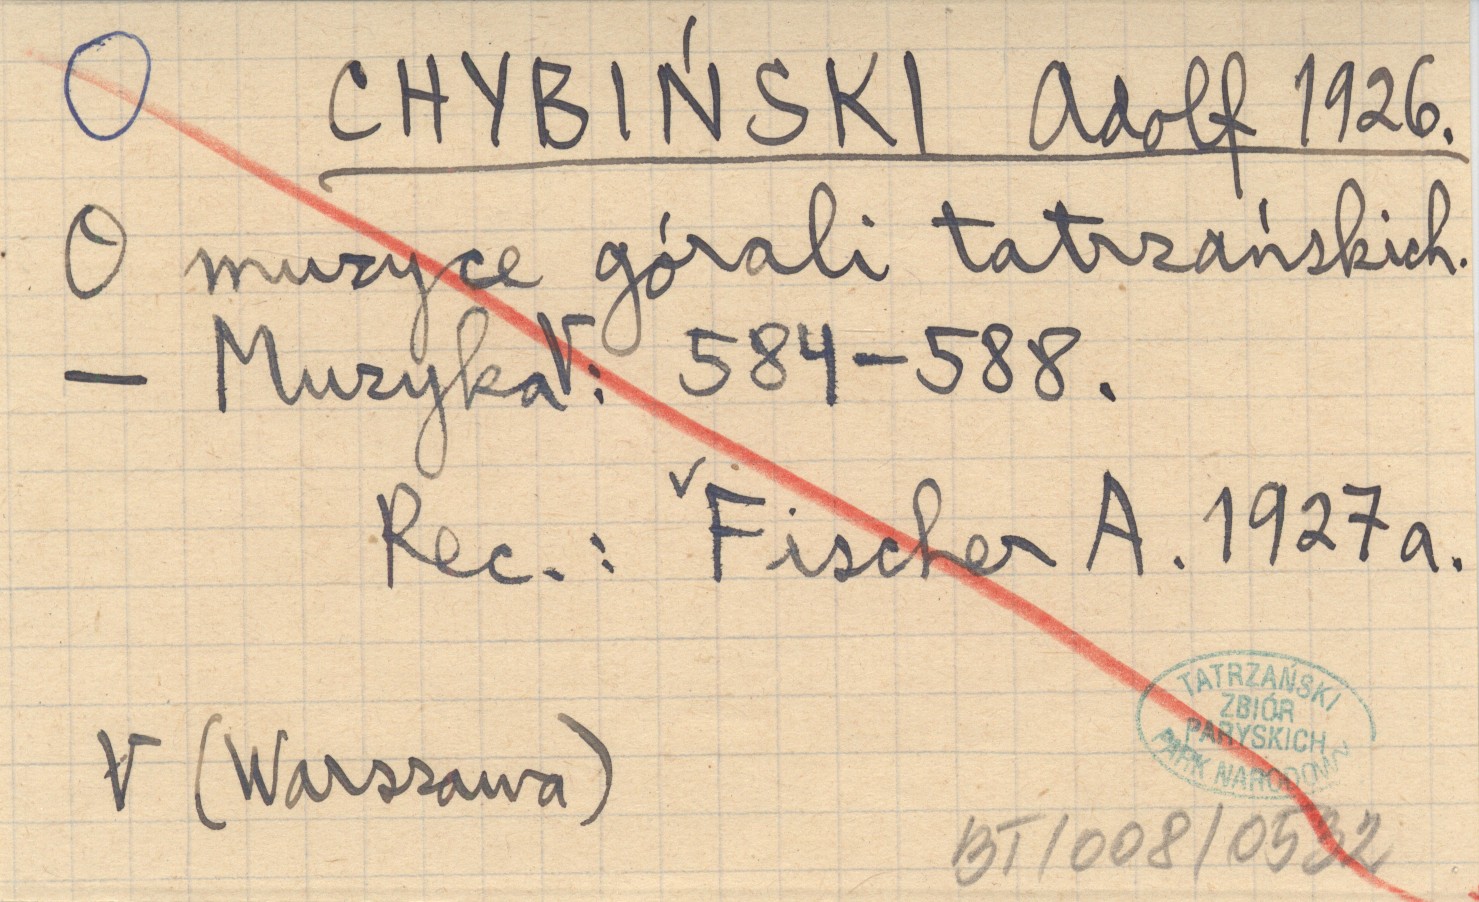 O CHYBIŃSKI Adolf 1926.
O muzyce górali tatrzańskich.
— Muzyka V: 584-588.
Rec.: v Fischer A. 1927a.
TATRZAŃSKI
ZBIÓR
PARYSKICH
PARK NARODOWY
V (Warszawa)
BT/008/0532